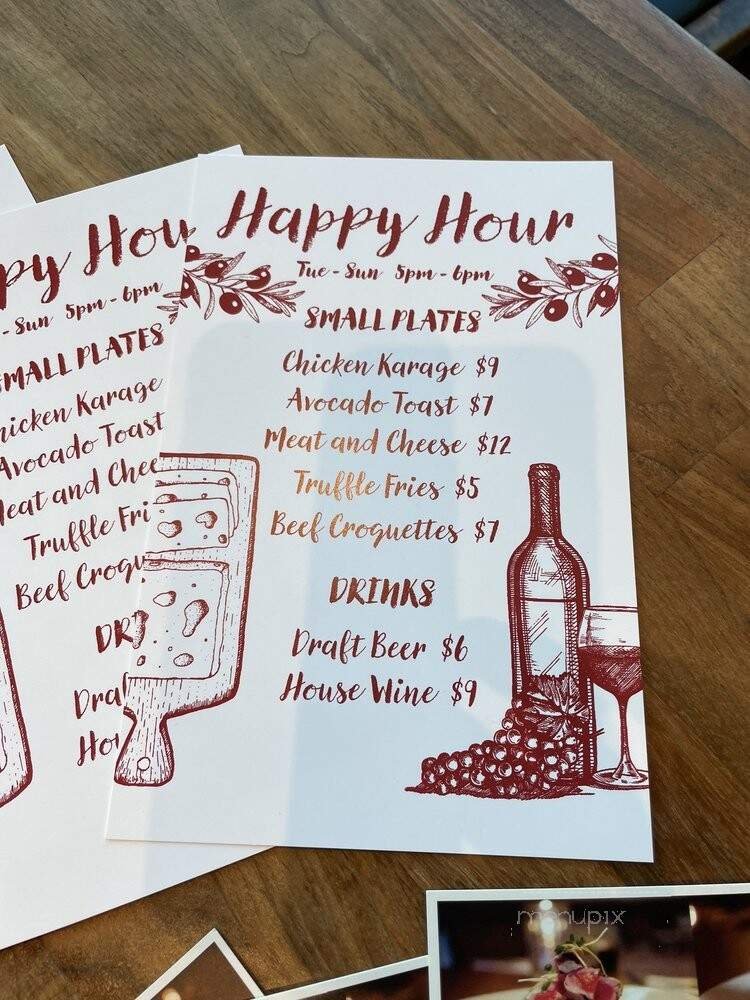 Happy Hour
Tue - Sun 5pm - 6pm
SMALL PLATES
Chicken Karage $9
Avocado Toast $7
Meat and Cheese $12
Truffle Fries $5
Beef Croquettes $7
DRINKS
Draft Beer $6
House Wine $9
py Hou
- Sun 5pm - 6pm
SMALL PLATES
hicken Karage
Avocado Toast
Meat and Chee
Truffle Fri
Beef Croqu
DR
Draf
Hou
menupix